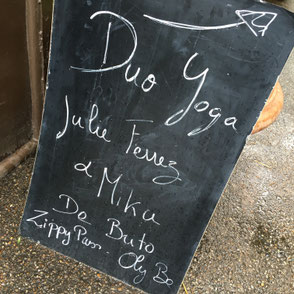 Duo Yoga
Julie Ferrez
& Mika
Da Buto
Zippy Pass. Oly Bo